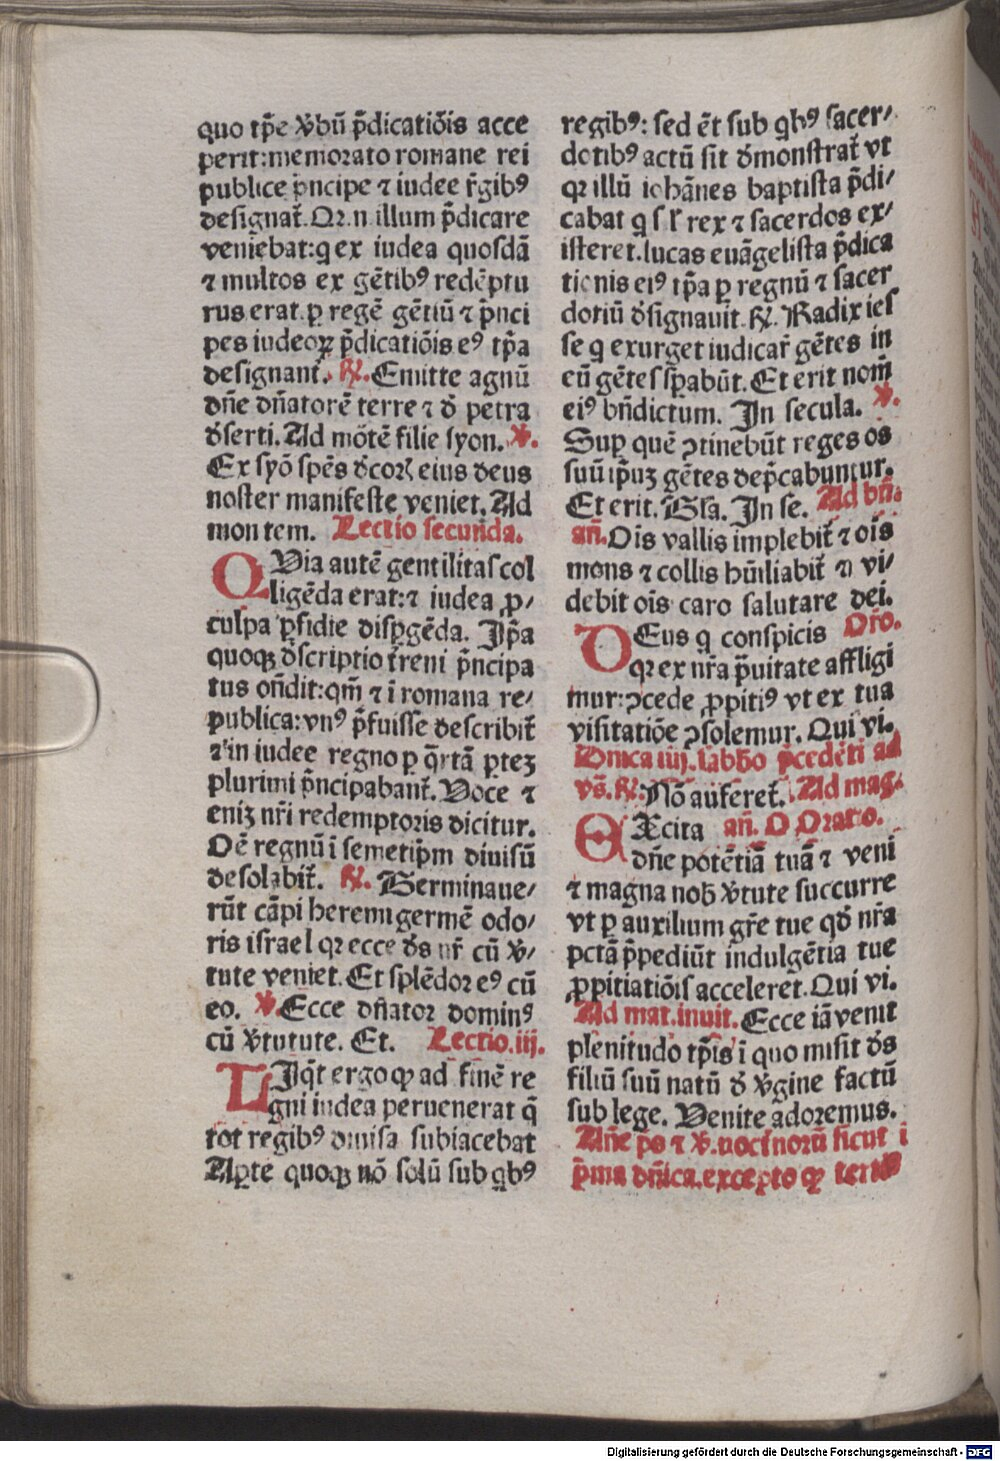 quo tp̄e v̆bū p̄dicatiōis acce
perit: memorato romane rei
publice p̄ncipe ⁊ iudee r̄gibꝰ
designat̄. Qꝛ. n. illum p̄dicare
veniebat: q ex iudea quosdā
⁊ multos ex gētibꝰ redēptu
rus erat. ꝑ regē gētiū ⁊ p̄nci
pes iudeoꝝ p̄dicatiōis eꝰ tp̄a
designant̄. ℟. Emitte agnū
dn̄e dn̄atorē terre ⁊ d̆ petra
d̆serti. Ad mōtē filie syon. ℣.
Ex syō spēs d̆corꝭ eius deus
noster manifeste veniet. Ad
montem. Lectio secunda.
QVia autē gentilitas col
ligēda erat: ⁊ iudea ꝓ
culpa ꝑfidie disꝑgēda. Ip̄a
quoqꝫ d̆scriptio t̄reni p̄ncipa
tus on̄dit: qm̄ ⁊ ī romana re⸗
publica: vnꝰ p̄fuisse describit̄
⁊ in iudee regno ꝑ q̄rtā ꝑteꝫ
plurimi p̄ncipabant̄. Voce ⁊
eniꝫ nr̄i redemptoris dicitur.
Oē regnū ī semetip̄m diuisū
desolabit̄. ℟. Germinaue⸗
rūt cāpi heremi germē odo⸗
ris israel qꝛ ecce d̆s nr̄ cū v̆⸗
tute veniet. Et splēdor eꝰ cū
eo. ℣. Ecce dn̄ator dominꝰ
cū v̆tutute. Et. Lectio. iij.
LIq̄t ergo ꝙ ad finē re
gni iudea peruenerat q̄
tot regibꝰ diuisa subiacebat
Aꝑte quoqꝫ nō solū sub qbꝰ
regibꝰ: sed ēt sub qbꝰ sacer⸗
dotibꝰ actū sit d̆monstrat̄ vt
qꝛ illū iohānes baptista p̄di⸗
cabat q sĺ rex ⁊ sacerdos ex⸗
isteret. lucas euāgelista p̄dica
tionis eiꝰ tp̄a ꝑ regnū ⁊ sacer
dotiū d̆signauit. ℟. Radix ies
se q exurget iudicar̄ gētes in
eū gētes sꝑabūt. Et erit nom̄
eiꝰ bn̄dictum. In secula. ℣.
Suꝑ quē ꝯtinebūt reges os
suū ip̄uꝫ gētes dep̄cabuntur.
Et erit. Gĺa. In se. Ad bn̄.
an̄. Oīs vallis implebit̄ ⁊ oīs
mons ⁊ collis hūiliabit̄ ⁊ vi⸗
debit oīs caro salutare dei.
DEus q conspicis Oro.
qꝛ ex nr̄a p̄uitate affligi
mur: ꝯcede ꝓpitiꝰ vt ex tua
visitatiōe ꝯsolemur. Qui vi.
Dnica iiij. sabbo p̄cedēti ad
vs̄. ℟. Nō auferet̄. Ad mag.
EXcita an̄. O Oratio.
dn̄e potētiā tuā ⁊ veni
⁊ magna nob̄ v̆tute succurre
vt ꝑ auxilium gr̄e tue qd̄ nr̄a
pctā p̄pediūt indulgētia tue
ꝓpitiatiōis acceleret. Qui vi.
Ad mat. inuit. Ecce iā venit
plenitudo tp̄is ī quo misit d̆s
filiū suū natū d̆ v̆gine factū
sub lege. Venite adoremus.
Ane ps ⁊ ℣. nocturnorū sicut ī
p̄ma dn̄ica. excepto ꝙ
Digitalisierung gefördert durch die Deutsche Forschungsgemeinschaft - DFG